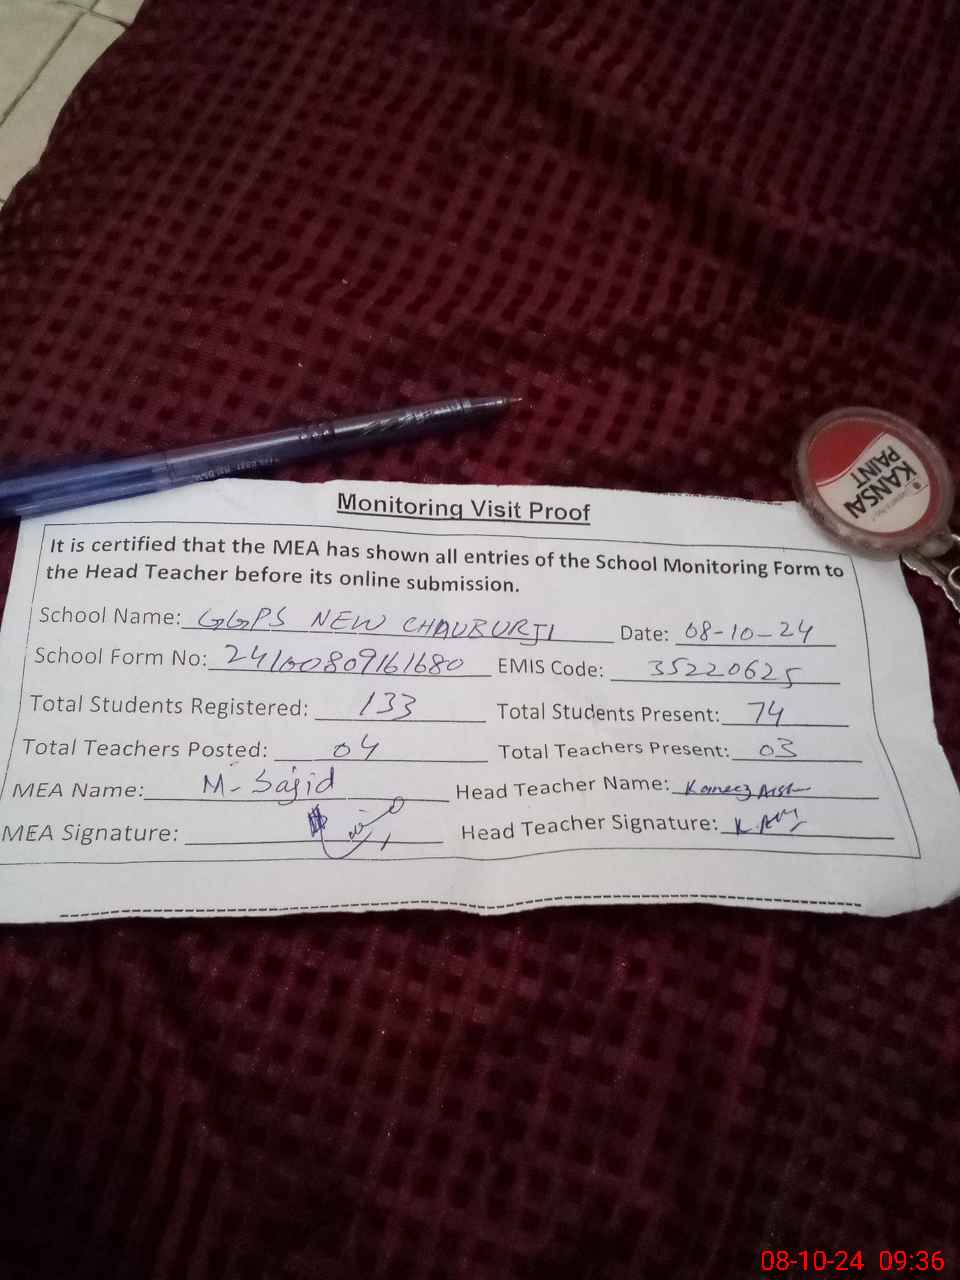 Monitoring Visit Proof
It is certified that the MEA has shown all entries of the School Monitoring Form to
the Head Teacher before its online submission.
School Name: GGPS NEW CHAUBURJI Date: 08-10-24
School Form No: 24100809161680 EMIS Code: 35220625
Total Students Registered: 133 Total Students Present: 74
Total Teachers Posted: 04 Total Teachers Present: 03
MEA Name: M-Sajid Head Teacher Name: Kaneez
MEA Signature: Head Teacher Signature:
KANSAI
PAINT
08-10-24 09:36